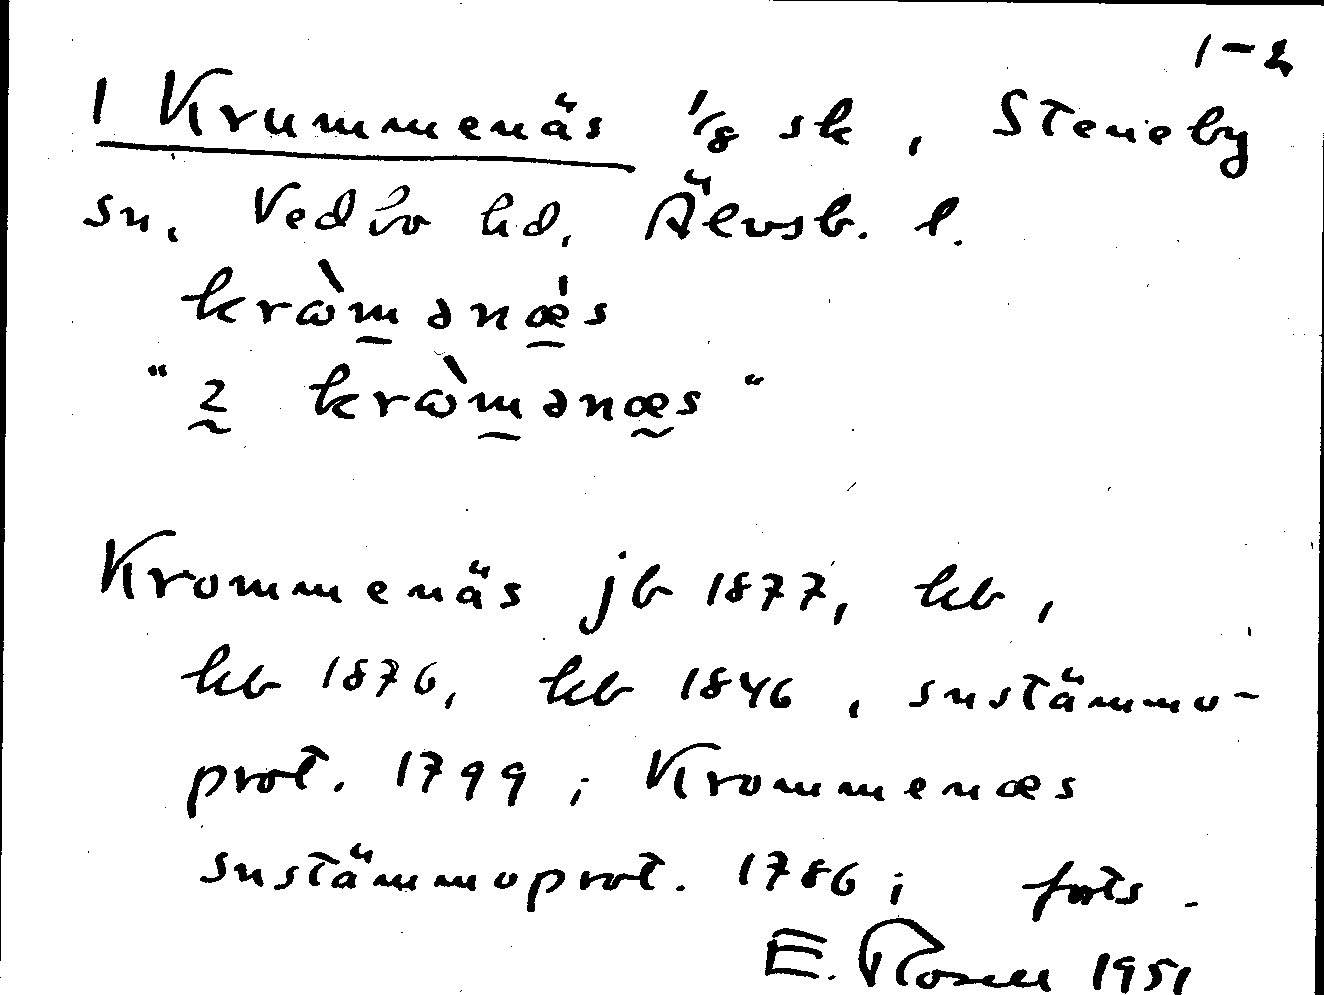 1-2
1 Krummenäs 1/8 sk, Steneby
sn, Vedbo hd, Älvsb. l.
krꞷ̀mənǽs
" 2 krꞷ̀mənæs "
Krommenäs jb 1877, kb,
kb 1876, kb 1846, snstämmo-
prot. 1799; Krommenæs
snstämmoprot. 1786; forts.
E. Rosell 1951